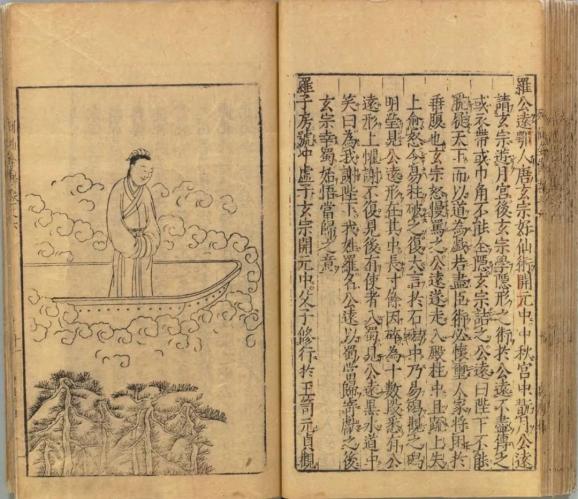 羅公遠鄂人唐玄宗好仙術開元中中秋宮中翫月公遠
請玄宗遊月宮後玄宗學隱形之術於公遠不盡傳之
或衣帶或巾角不能全隱玄宗詰之公遠曰陛下不能
脫徙天下而以道為戲若盡臣術必懷璽人家將困於
腹也玄宗怒慢罵之公遠遂走入殿柱中且疏上失
上愈怒令易柱破之復大言於石中乃易觀之
明瑩見公遠形在其中長寸餘因碎為十數段悉有公
遠形上懼謝不復見後有使者入蜀見公遠黑水道中
笑曰為我謝陛下我姓羅名公遠以蜀當歸寄獻之後
玄宗幸蜀始悟當歸之意
羅子房號冲虛子玄宗開元中父子修行於玉笥元貞觀